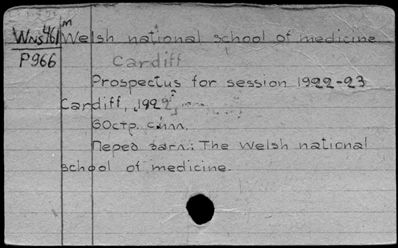 WNS 46/ m
Welsh national school of medicine
P966
Cardiff
Prospectus for session 1922-23
Cardiff, 1922
60стр. с илл.
Перед загл.: The Welsh national
school of medicine.